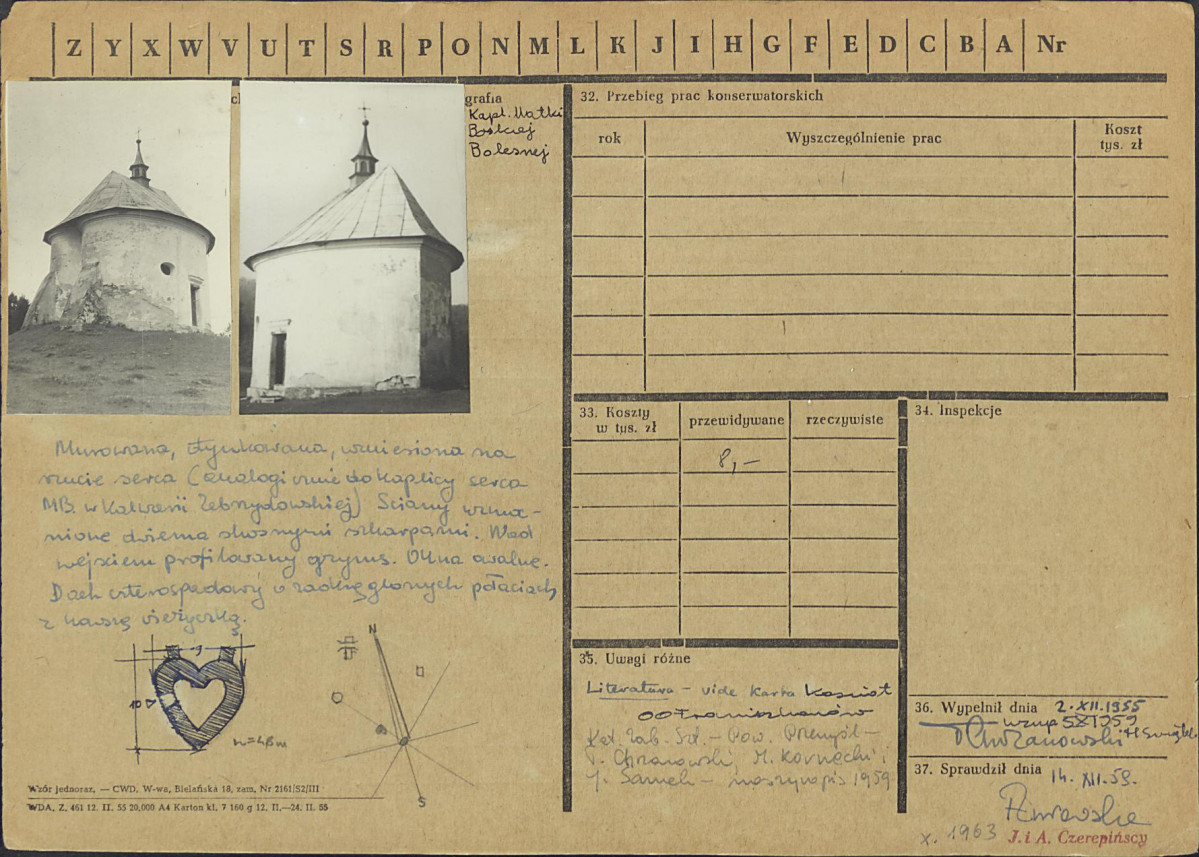 Z Y X W V U T S R P O N M L K J I H G F E D C B A Nr
grafia
Kapl. Matki
Boskiej
Bolesnej
Murowana, otynkowana, wzniesiona na
rzucie serca (analogicznie do kaplicy serca
MB. w Kalwarii Zebrzydowskiej) Ściany wzmoc-
nione dwiema skośnymi szkarpami. Nad
wejściem profilowany gzyms. Okna owalne.
Dach czterospadowy o zaokrąglonych połaciach
z ładną wieżyczką.
N
S
Wzór jednoraz. — CWD, W-wa, Bielańska 18, zam. Nr 2161/S2/III
WDA. Z. 461 12. II. 55 20,000 A4 Karton kl. 7 160 g 12. II.—24. II. 55
32. Przebieg prac konserwatorskich
rok Wyszczególnienie prac Koszt
tys. zł
33. Koszty
w tys. zł przewidywane rzeczywiste
8,—
34. Inspekcje
35. Uwagi różne
Literatura – vide karta Kościół
OO Franciszkanów
Kat. Zab. Szt. – Pow. Przemyśl –
T. Chrzanowski, M. Kornecki i
J. Samek – maszynopis 1959
36. Wypełnił dnia 2.XII.1955
T Chrzanowski
37. Sprawdził dnia 14. XII. 59.
x. 1963 J. i A. Czerepińscy